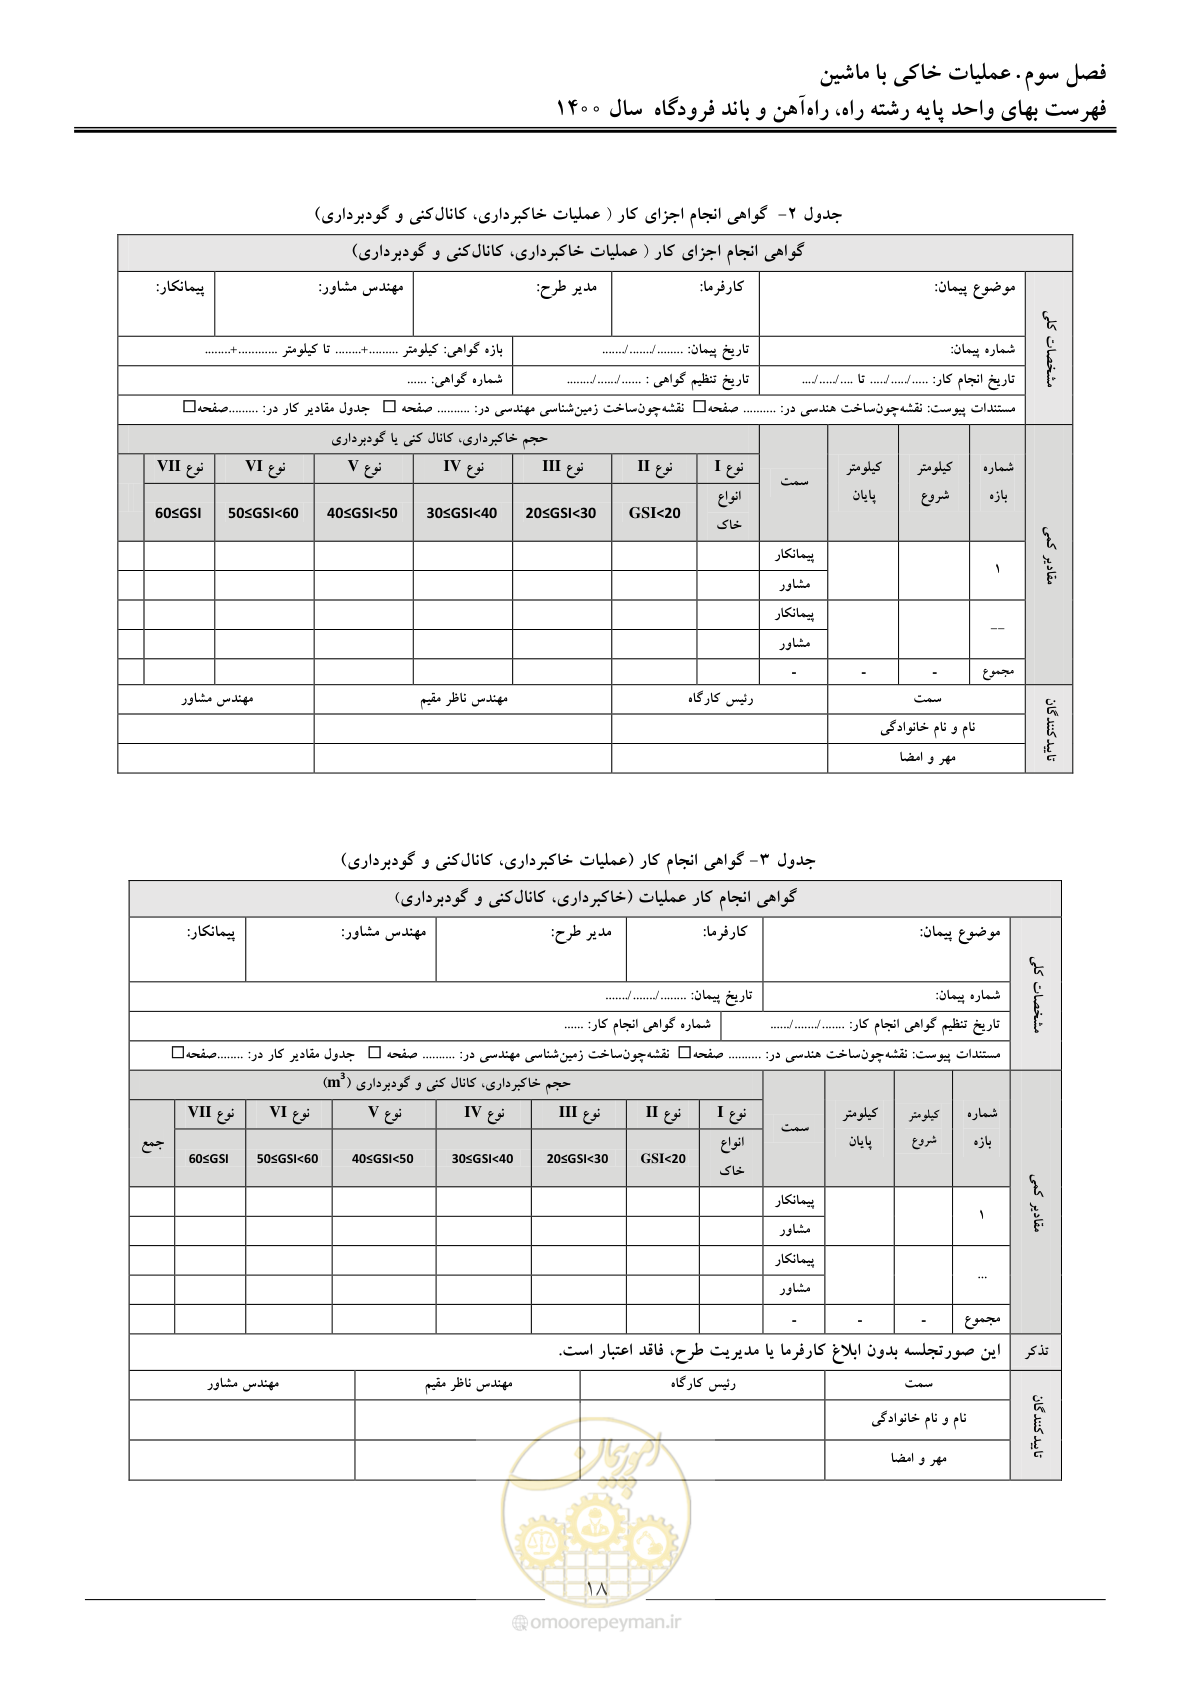 فصل سوم. عملیات خاکی با ماشین
فهرست بهای واحد پایه رشته راه، راه‌آهن و باند فرودگاه سال ۱۴۰۰
جدول ۲- گواهی انجام اجزای کار ( عملیات خاکبرداری، کانال‌کنی و گودبرداری)
گواهی انجام اجزای کار ( عملیات خاکبرداری، کانال‌کنی و گودبرداری)
مشخصات کلی
موضوع پیمان: کارفرما: مدیر طرح: مهندس مشاور: پیمانکار:
شماره پیمان: تاریخ پیمان: ......../......./....... بازه گواهی: کیلومتر .........+........ تا کیلومتر ............+........
تاریخ انجام کار: ...../...../..... تا ..../...../.... تاریخ تنظیم گواهی : ....../....../........ شماره گواهی: ......
مستندات پیوست: نقشه‌چون‌ساخت هندسی در: .......... صفحه☐ نقشه‌چون‌ساخت زمین‌شناسی مهندسی در: .......... صفحه ☐ جدول مقادیر کار در: .........صفحه☐
مقادیر کمی
شماره بازه کیلومتر شروع کیلومتر پایان سمت حجم خاکبرداری، کانال کنی یا گودبرداری
نوع I نوع II نوع III نوع IV نوع V نوع VI نوع VII
انواع خاک GSI<20 20≤GSI<30 30≤GSI<40 40≤GSI<50 50≤GSI<60 60≤GSI
۱ پیمانکار
مشاور
__ پیمانکار
مشاور
مجموع - - -
تاییدکنندگان
سمت رئیس کارگاه مهندس ناظر مقیم مهندس مشاور
نام و نام خانوادگی
مهر و امضا
جدول ۳- گواهی انجام کار (عملیات خاکبرداری، کانال‌کنی و گودبرداری)
گواهی انجام کار عملیات (خاکبرداری، کانال‌کنی و گودبرداری)
مشخصات کلی
موضوع پیمان: کارفرما: مدیر طرح: مهندس مشاور: پیمانکار:
شماره پیمان: تاریخ پیمان: ......../......./.......
تاریخ تنظیم گواهی انجام کار: ......./......./...... شماره گواهی انجام کار: ......
مستندات پیوست: نقشه‌چون‌ساخت هندسی در: .......... صفحه☐ نقشه‌چون‌ساخت زمین‌شناسی مهندسی در: .......... صفحه ☐ جدول مقادیر کار در: ........صفحه☐
مقادیر کمی
شماره بازه کیلومتر شروع کیلومتر پایان سمت حجم خاکبرداری، کانال کنی و گودبرداری (m³)
نوع I نوع II نوع III نوع IV نوع V نوع VI نوع VII جمع
انواع خاک GSI<20 20≤GSI<30 30≤GSI<40 40≤GSI<50 50≤GSI<60 60≤GSI
۱ پیمانکار
مشاور
... پیمانکار
مشاور
مجموع - - -
تذکر این صورتجلسه بدون ابلاغ کارفرما یا مدیریت طرح، فاقد اعتبار است.
تاییدکنندگان
سمت رئیس کارگاه مهندس ناظر مقیم مهندس مشاور
نام و نام خانوادگی
مهر و امضا
امور پیمان
۱۸
omoorepeyman.ir